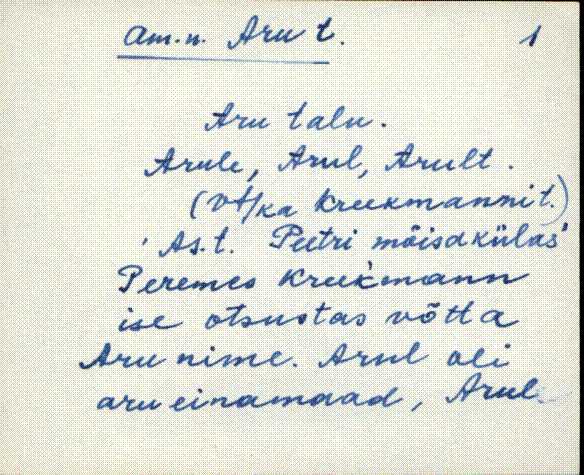 am. n. Aru t. 1
Aru talu.
Arule, Arul, Arult.
(Vt/ka Kreekmanni t.)
As. t. Peetri mõisakülas
Peremes Kreekmann
ise otsustas võtta
Aru nime. Arul oli
aru einamaad, Arul